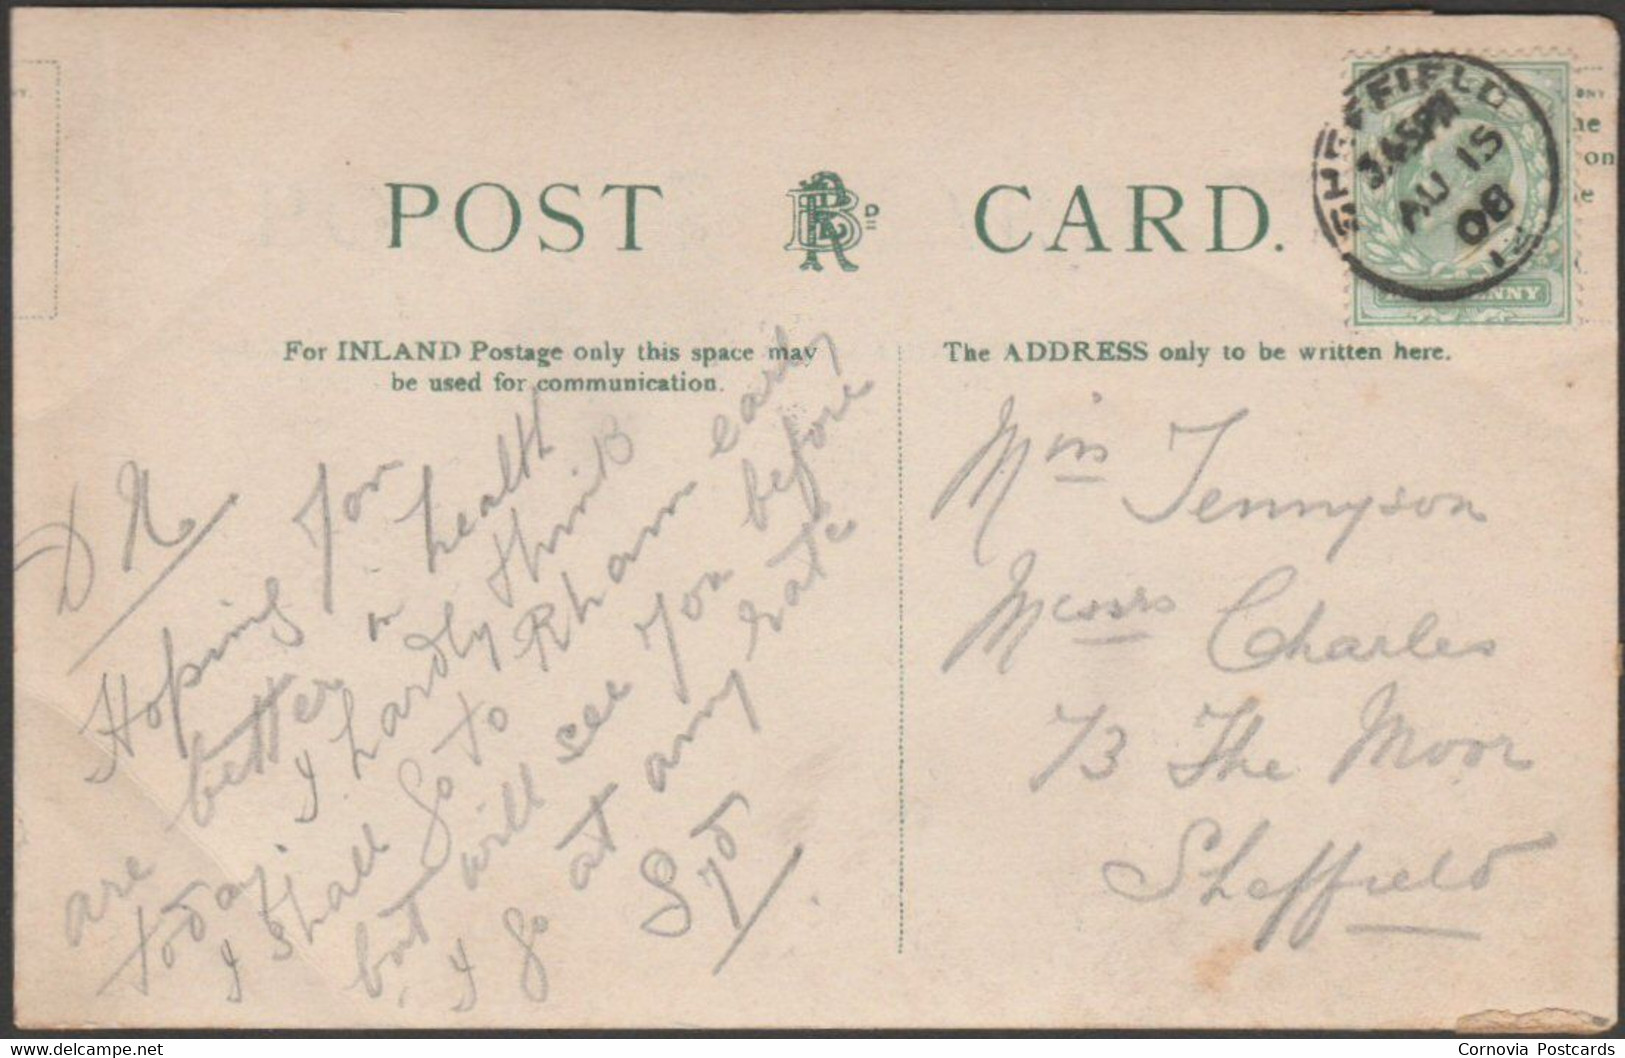 POST CARD.
SHEFFIELD
3.45PM
AU 15
08
For INLAND Postage only this space may
be used for communication.
The ADDRESS only to be written here.
D N
Hoping you
are better in health
today. I hardly think
I shall go to Rham early
but will see you before
I go at any rate
Syd
Miss Tennyson
Messrs Charles
73 The Moor
Sheffield
Cornovia Postcards